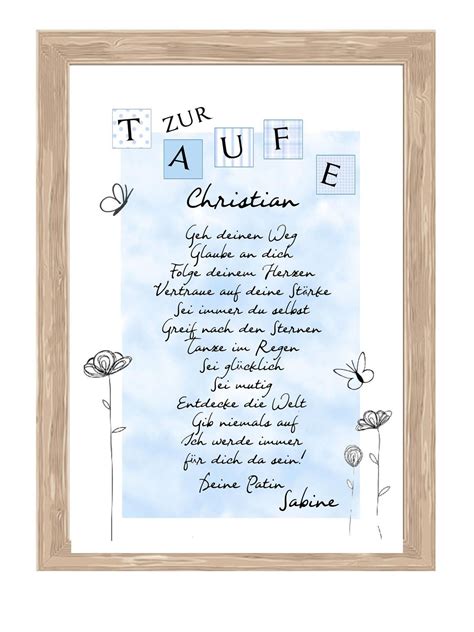 ZUR
TAUFE
Christian
Geh deinen Weg
Glaube an dich
Folge deinem Herzen
Vertraue auf deine Stärke
Sei immer du selbst
Greif nach den Sternen
Tanze im Regen
Sei glücklich
Sei mutig
Entdecke die Welt
Gib niemals auf
Ich werde immer
für dich da sein!
Deine Patin
Sabine